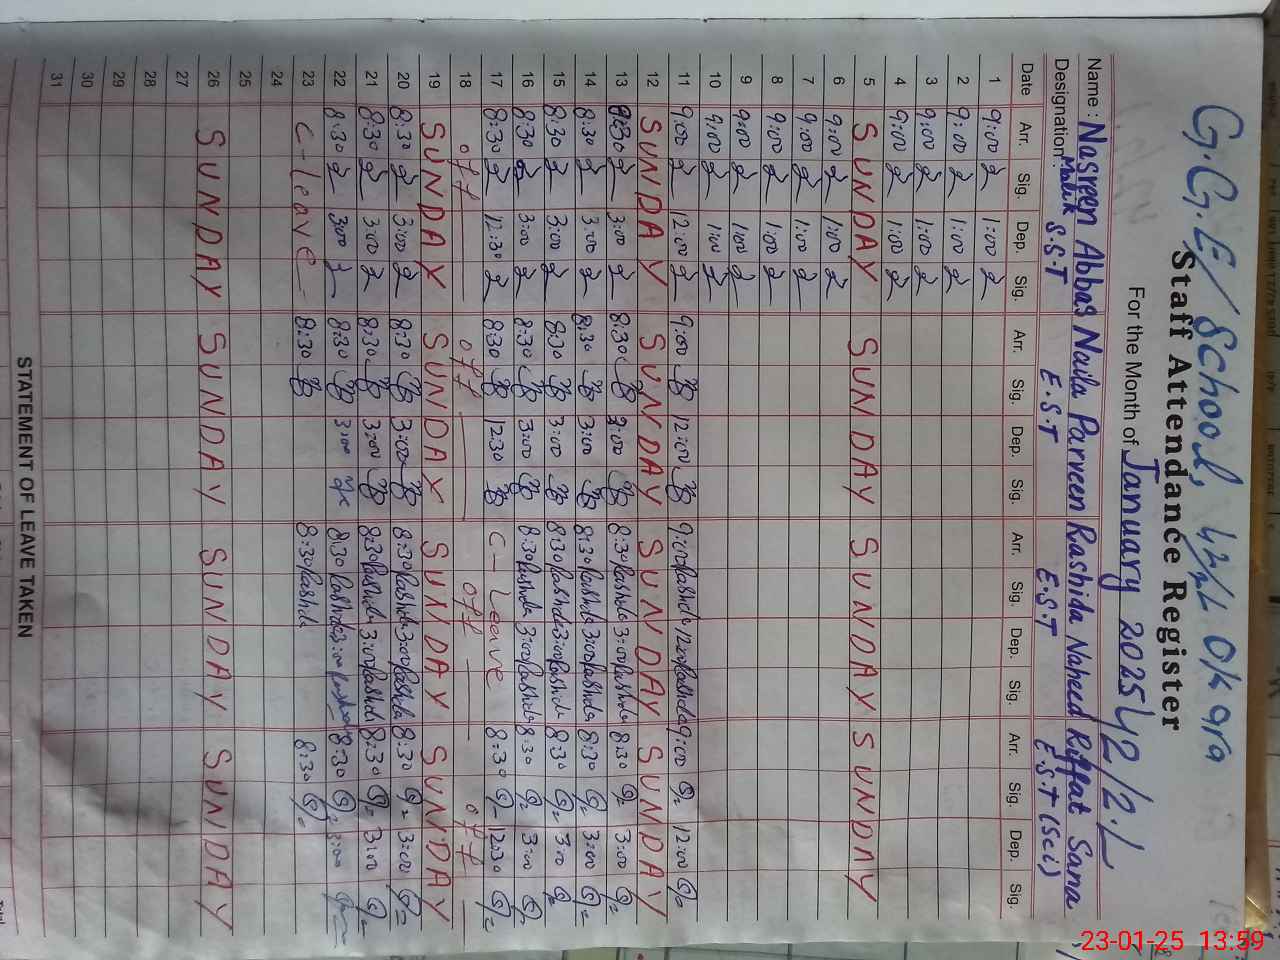 G.G.E/School, 42/2L Okara
Staff Attendance Register
For the Month of January 2025 42/2.L
Name : Nasreen Abbas Naila Parveen Rashida Naheed Riffat Sana
Designation : Malik S.S.T E.S.T E.S.T E.S.T (Sci)
Date Arr. Sig. Dep. Sig. Arr. Sig. Dep. Sig. Arr. Sig. Dep. Sig. Arr. Sig. Dep. Sig.
1 9:00 1:00
2 9:00 1:00
3 9:00 1:00
4 9:00 1:00
5 SUNDAY SUNDAY SUNDAY SUNDAY
6 9:00 1:00
7 9:00 1:00
8 9:00 1:00
9 9:00 1:00
10 9:00 1:00
11 9:00 12:00 9:00 12:00 9:00 Rashida 12:00 Rashida 9:00 12:00
12 SUNDAY SUNDAY SUNDAY SUNDAY
13 8:30 3:00 8:30 3:00 8:30 Rashida 3:00 Rashida 8:30 3:00
14 8:30 3:00 8:30 3:00 8:30 Rashida 3:00 Rashida 8:30 3:00
15 8:30 3:00 8:30 3:00 8:30 Rashida 3:00 Rashida 8:30 3:00
16 8:30 3:00 8:30 3:00 8:30 Rashida 3:00 Rashida 8:30 3:00
17 8:30 12:30 8:30 12:30 C-Leave 8:30 12:30
18 off off off off
19 SUNDAY SUNDAY SUNDAY SUNDAY
20 8:30 3:00 8:30 3:00 8:30 Rashida 3:00 Rashida 8:30 3:00
21 8:30 3:00 8:30 3:00 8:30 Rashida 3:00 Rashida 8:30 3:00
22 8:30 3:00 8:30 3:00 8:30 Rashida 3:00 Rashida 8:30 3:00
23 C-leave 8:30 8:30 Rashida 8:30
24
25
26 SUNDAY SUNDAY SUNDAY SUNDAY
27
28
29
30
31
STATEMENT OF LEAVE TAKEN
23-01-25 13:59